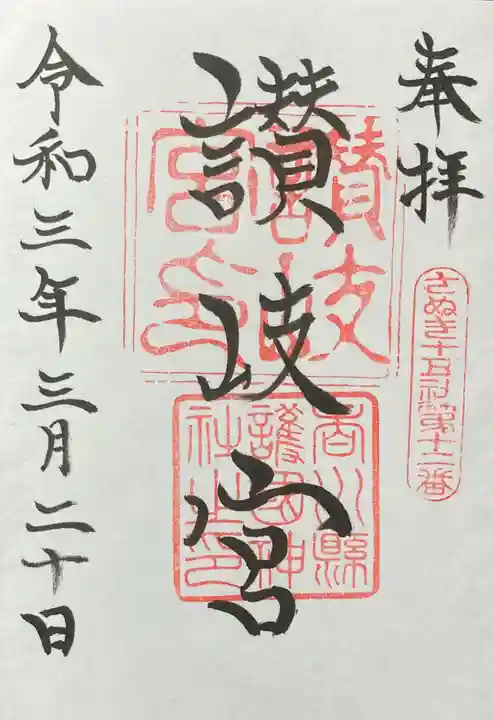 奉拝
さぬき十五社第十二番
讃岐宮
讃岐宮印
香川縣護國神社之印
令和三年三月二十日